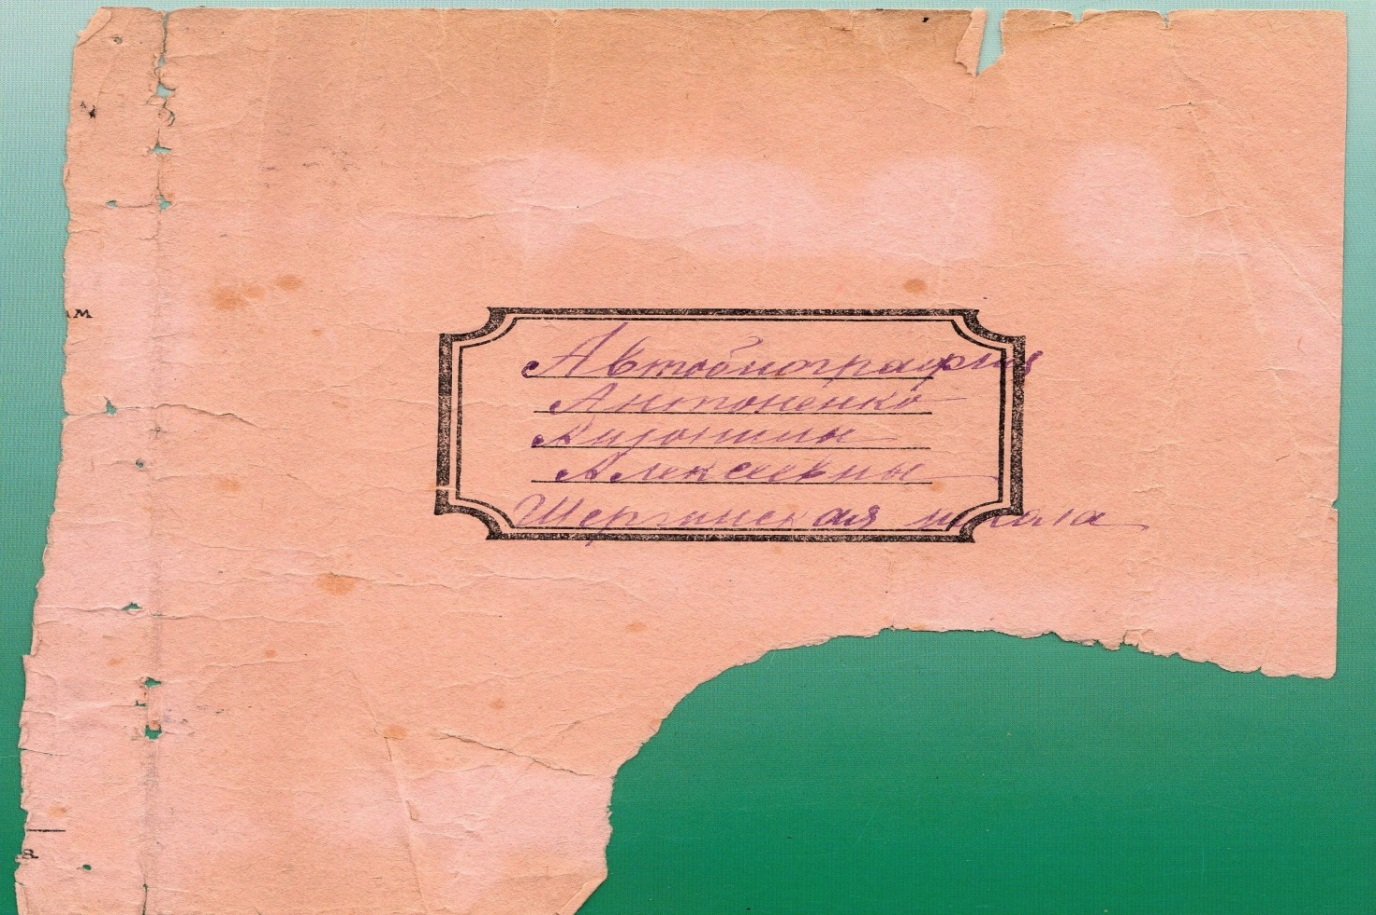 м.
Автобиография
Антоненко
Алексеевны
Шергинская школа
в.